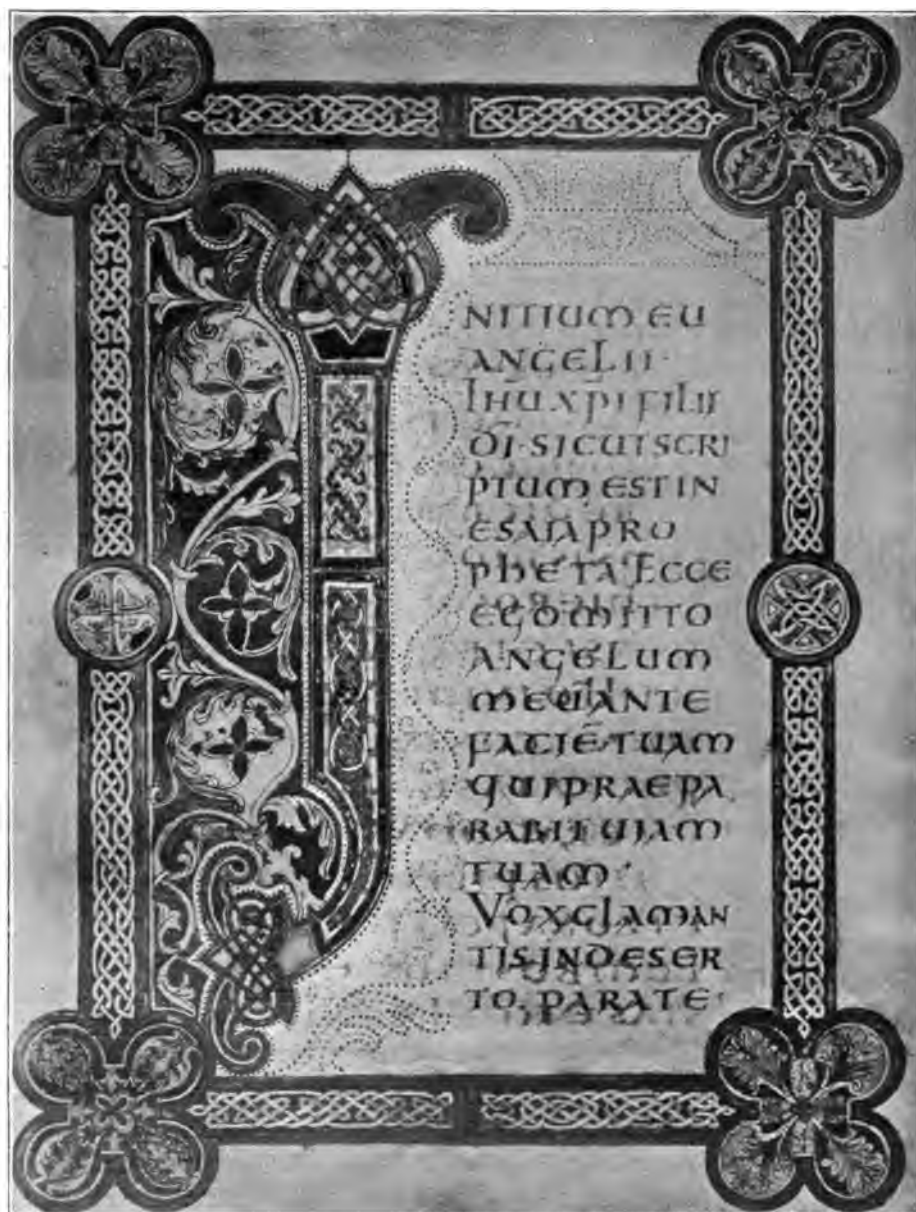 INITIUM EU
ANGELII·
IHU XPI FILII
DI·SICUT SCRI
PTUM EST IN
ESAIA PRO
PHETA·ECCE
EGO MITTO
ANGELUM
MEUM ANTE
FACIĒ·TUAM
QUI PRAEPA
RABIT UIAM
TUAM·
VOX CLAMAN
TIS IN DESER
TO, PARATE·